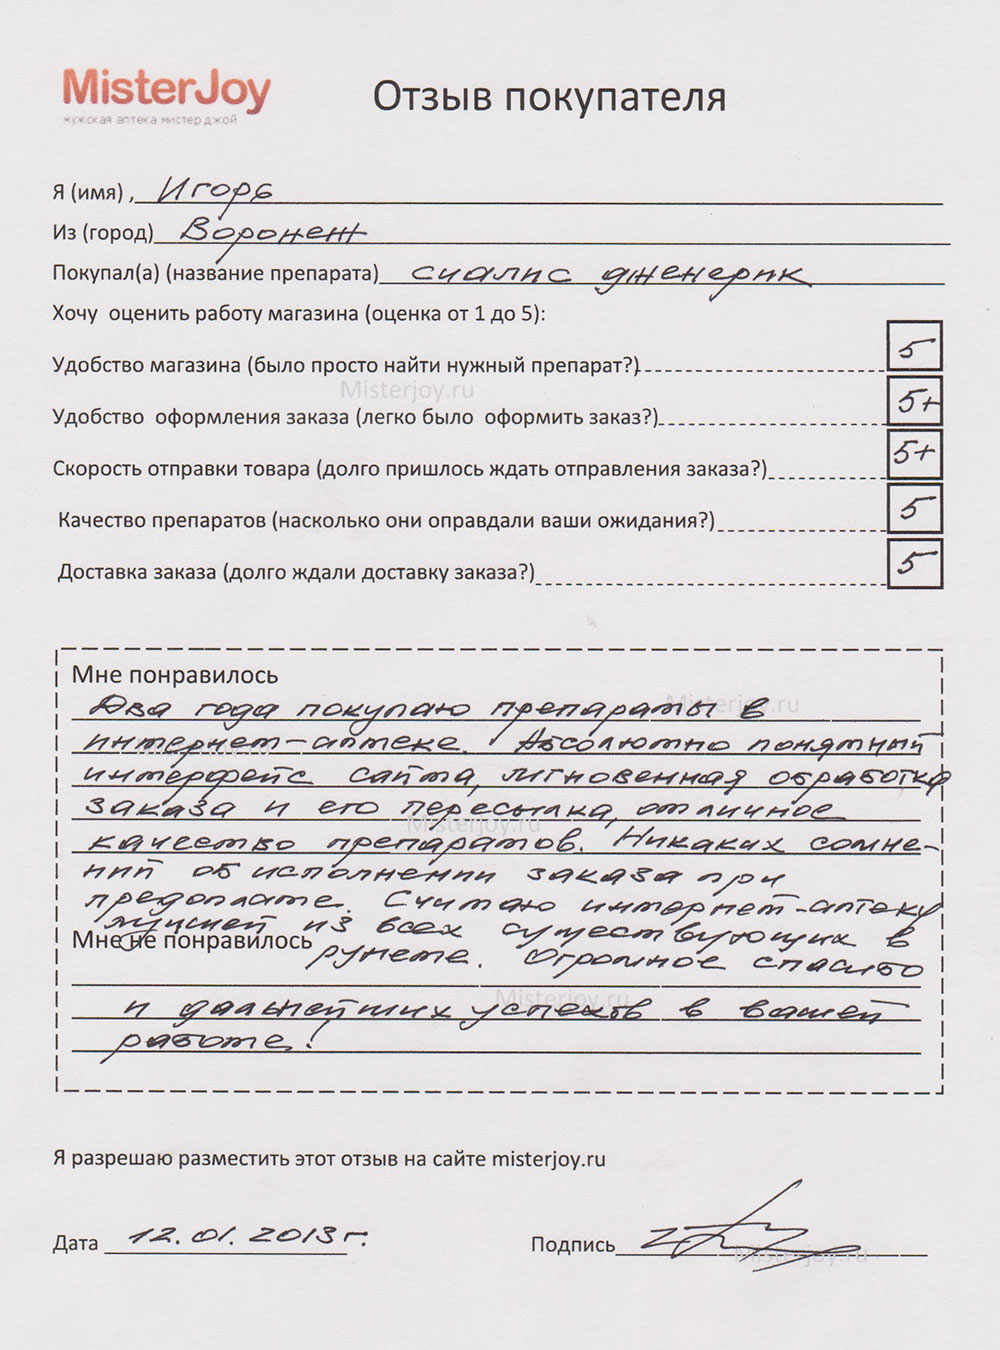 MisterJoy
мужская аптека мистер джой
Отзыв покупателя
Я (имя) , Игорь
Из (город) Воронеж
Покупал(а) (название препарата) сиалис дженерик
Хочу оценить работу магазина (оценка от 1 до 5):
Удобство магазина (было просто найти нужный препарат?) 5
Misterjoy.ru
Удобство оформления заказа (легко было оформить заказ?) 5+
Скорость отправки товара (долго пришлось ждать отправления заказа?) 5+
Качество препаратов (насколько они оправдали ваши ожидания?) 5
Доставка заказа (долго ждали доставку заказа?) 5
Мне понравилось
Misterjoy.ru
Два года покупаю препараты в
интернет-аптеке. Абсолютно понятный
интерфейс сайта, мгновенная обработка
заказа и его пересылка, отличное
Misterjoy.ru
качество препаратов. Никаких сомне-
ний об исполнении заказа при
предоплате. Считаю интернет-аптеку
лучшей из всех существующих в
Мне не понравилось
рунете. Огромное спасибо
Misterjoy.ru
и дальнейших успехов в вашей
работе!
Я разрешаю разместить этот отзыв на сайте misterjoy.ru
Дата 12.01.2013г.
Подпись
Misterjoy.ru